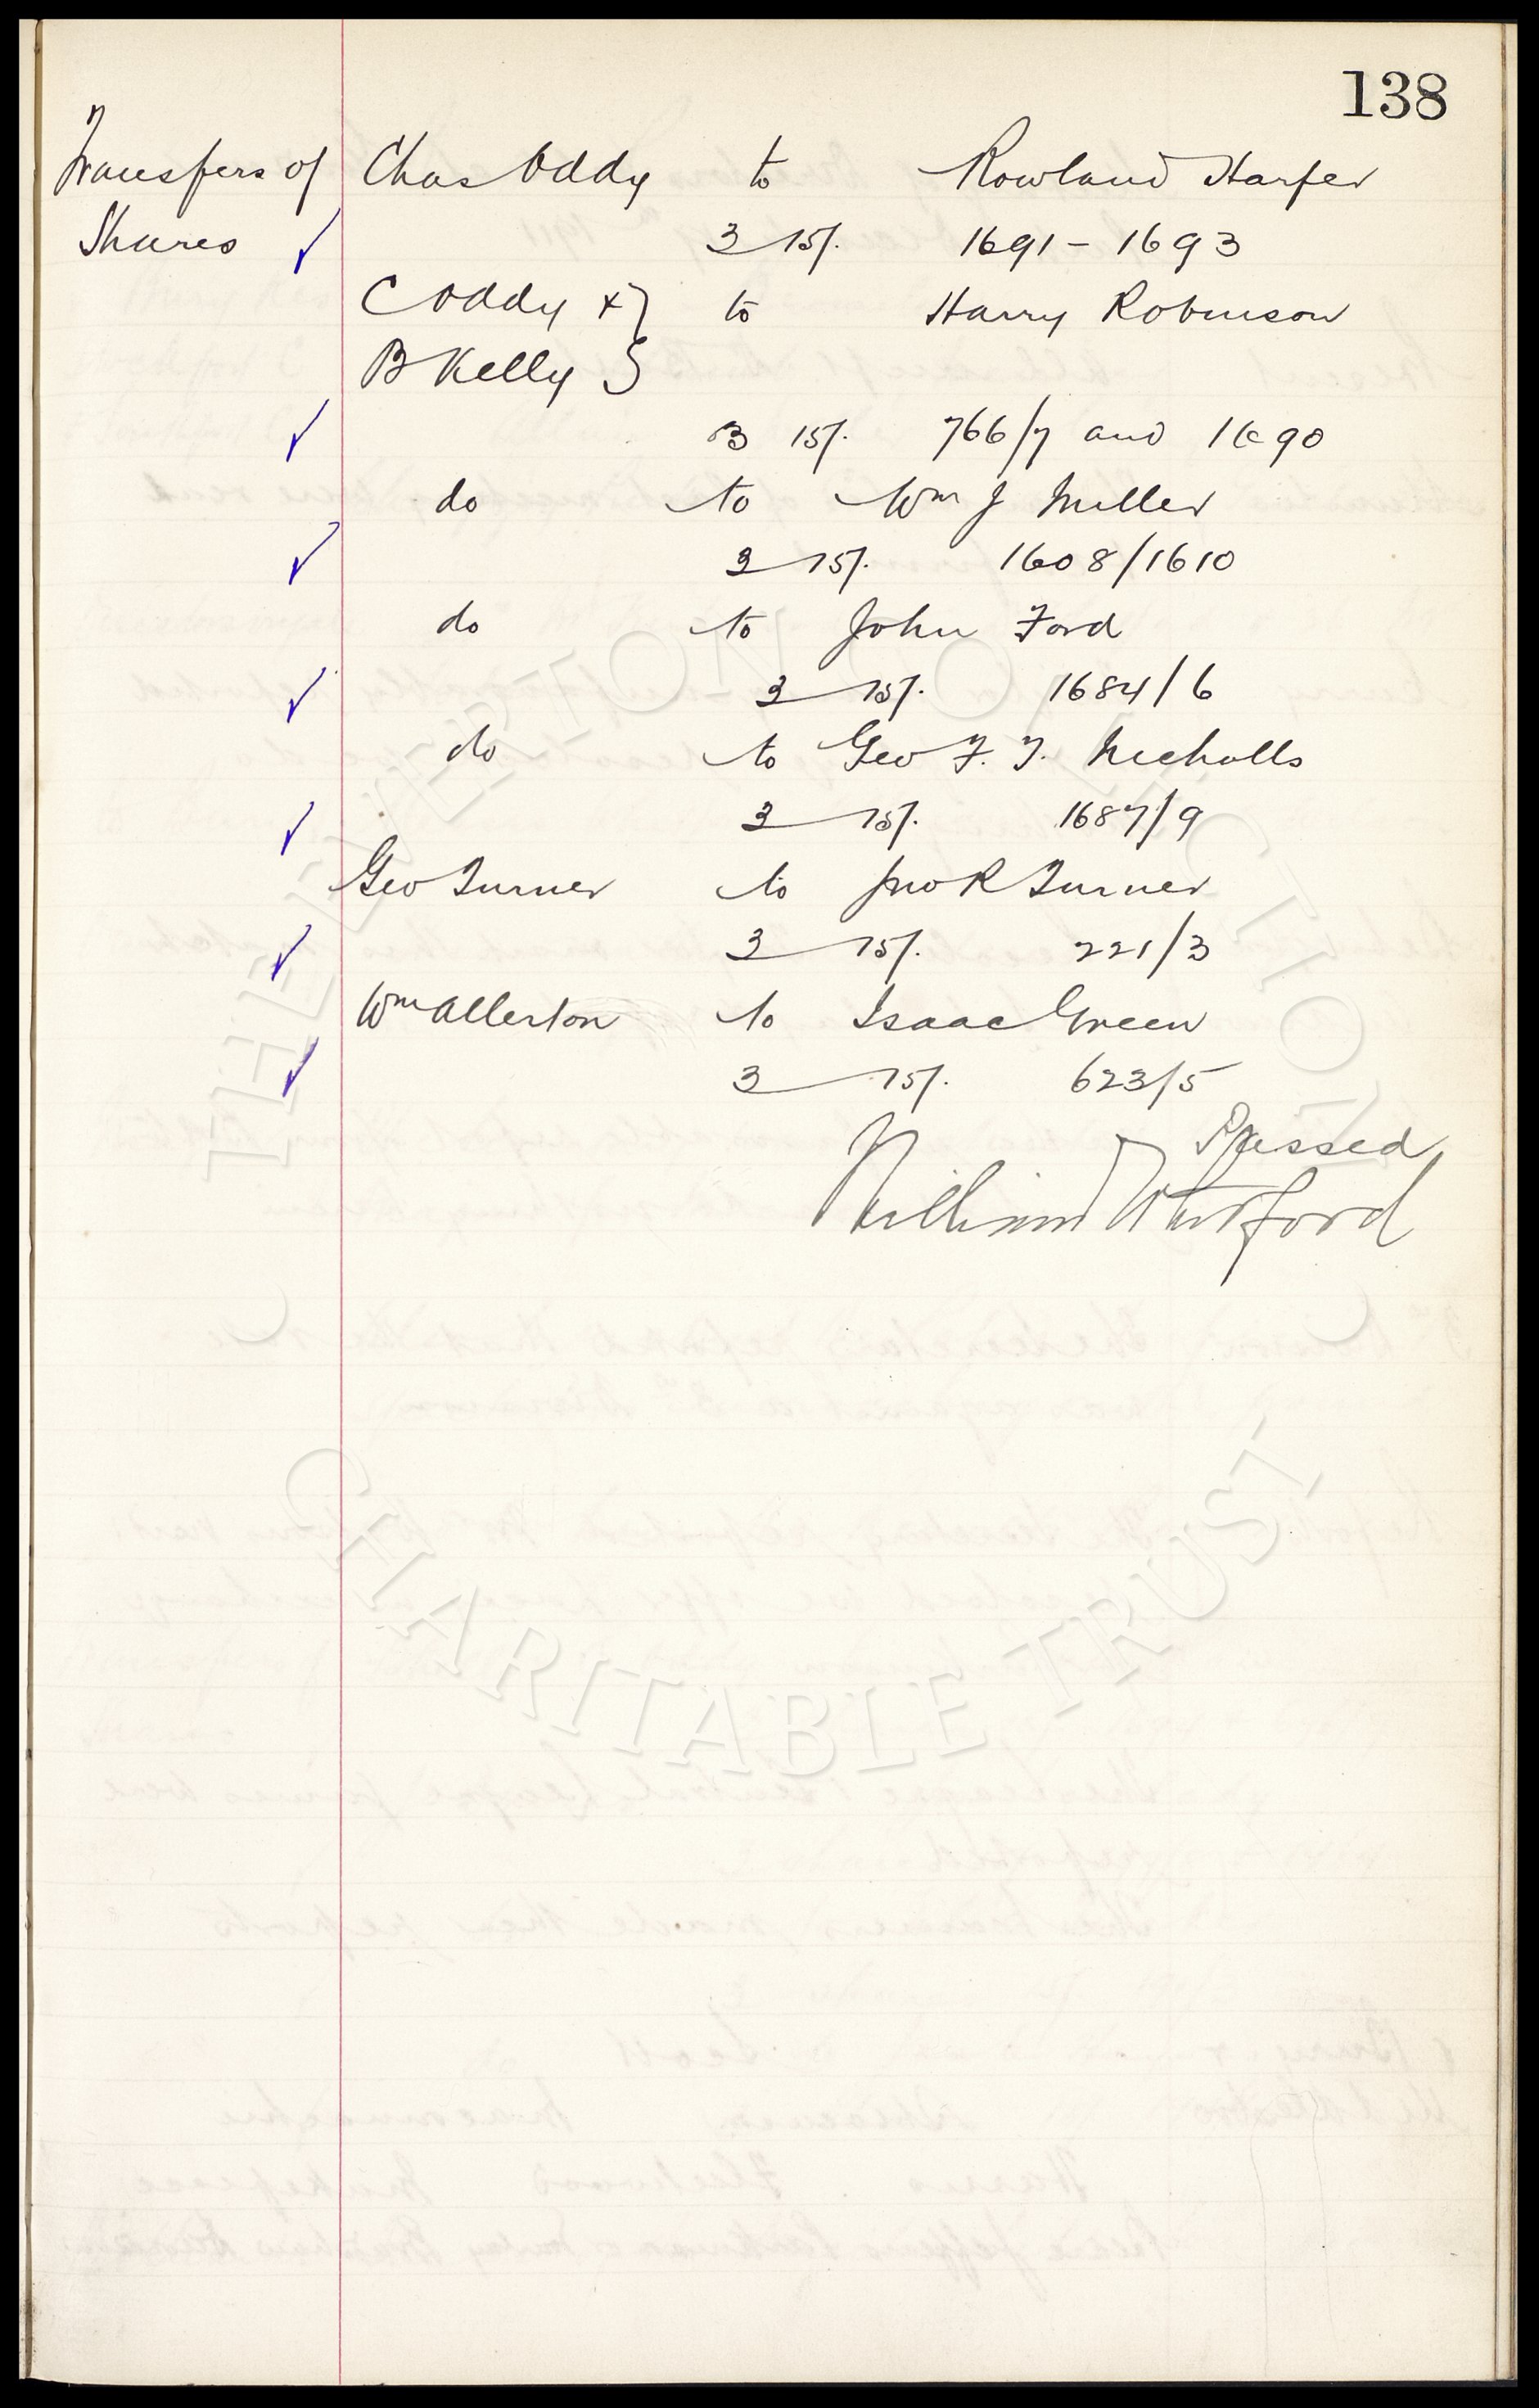 138
Transfers of Chas Oddy to Rowland Harper
Shares ✓ 3 15/- 1691 - 1693
C Oddy + } to Harry Robinson
B Kelly }
✓ 3 15/- 766/7 and 1690
do to Wm J Miller
✓ 3 15/- 1608/1610
do to John Ford
✓ 3 15/- 1684/6
do to Geo F. T. Nicholls
✓ 3 15/- 1687/9
Geo Turner to Jno R Turner
✓ 3 15/- 221/3
Wm Allerton to Isaac Green
✓ 3 15/- 623/5
Passed
William
THE EVERTON COLLECTION
CHARITABLE TRUST